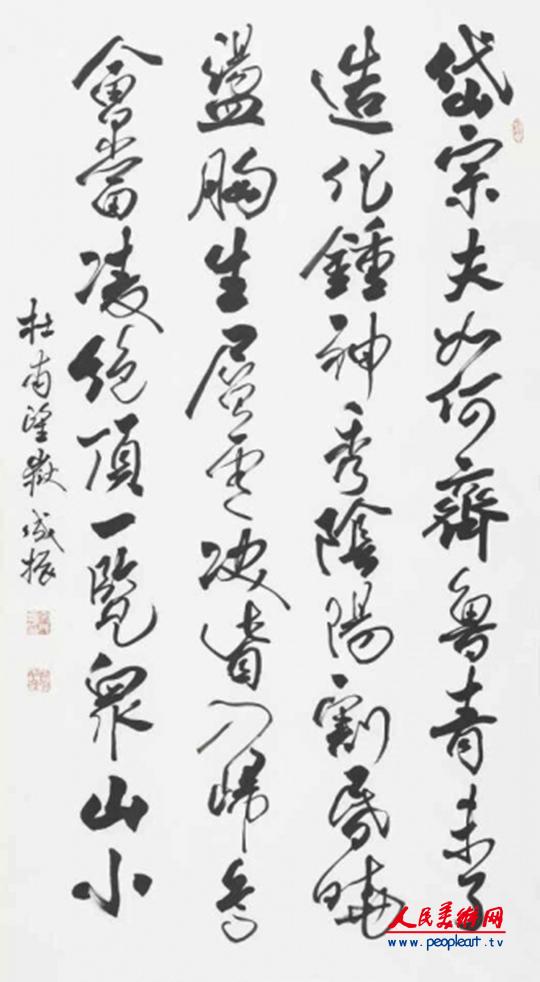 岱宗夫如何齊魯青未了
造化鍾神秀陰陽割昏曉
盪胸生層雲決眥入歸鳥
會當凌絕頂一覽眾山小
杜甫望嶽 成振
人民美術网
www.peopleart.tv